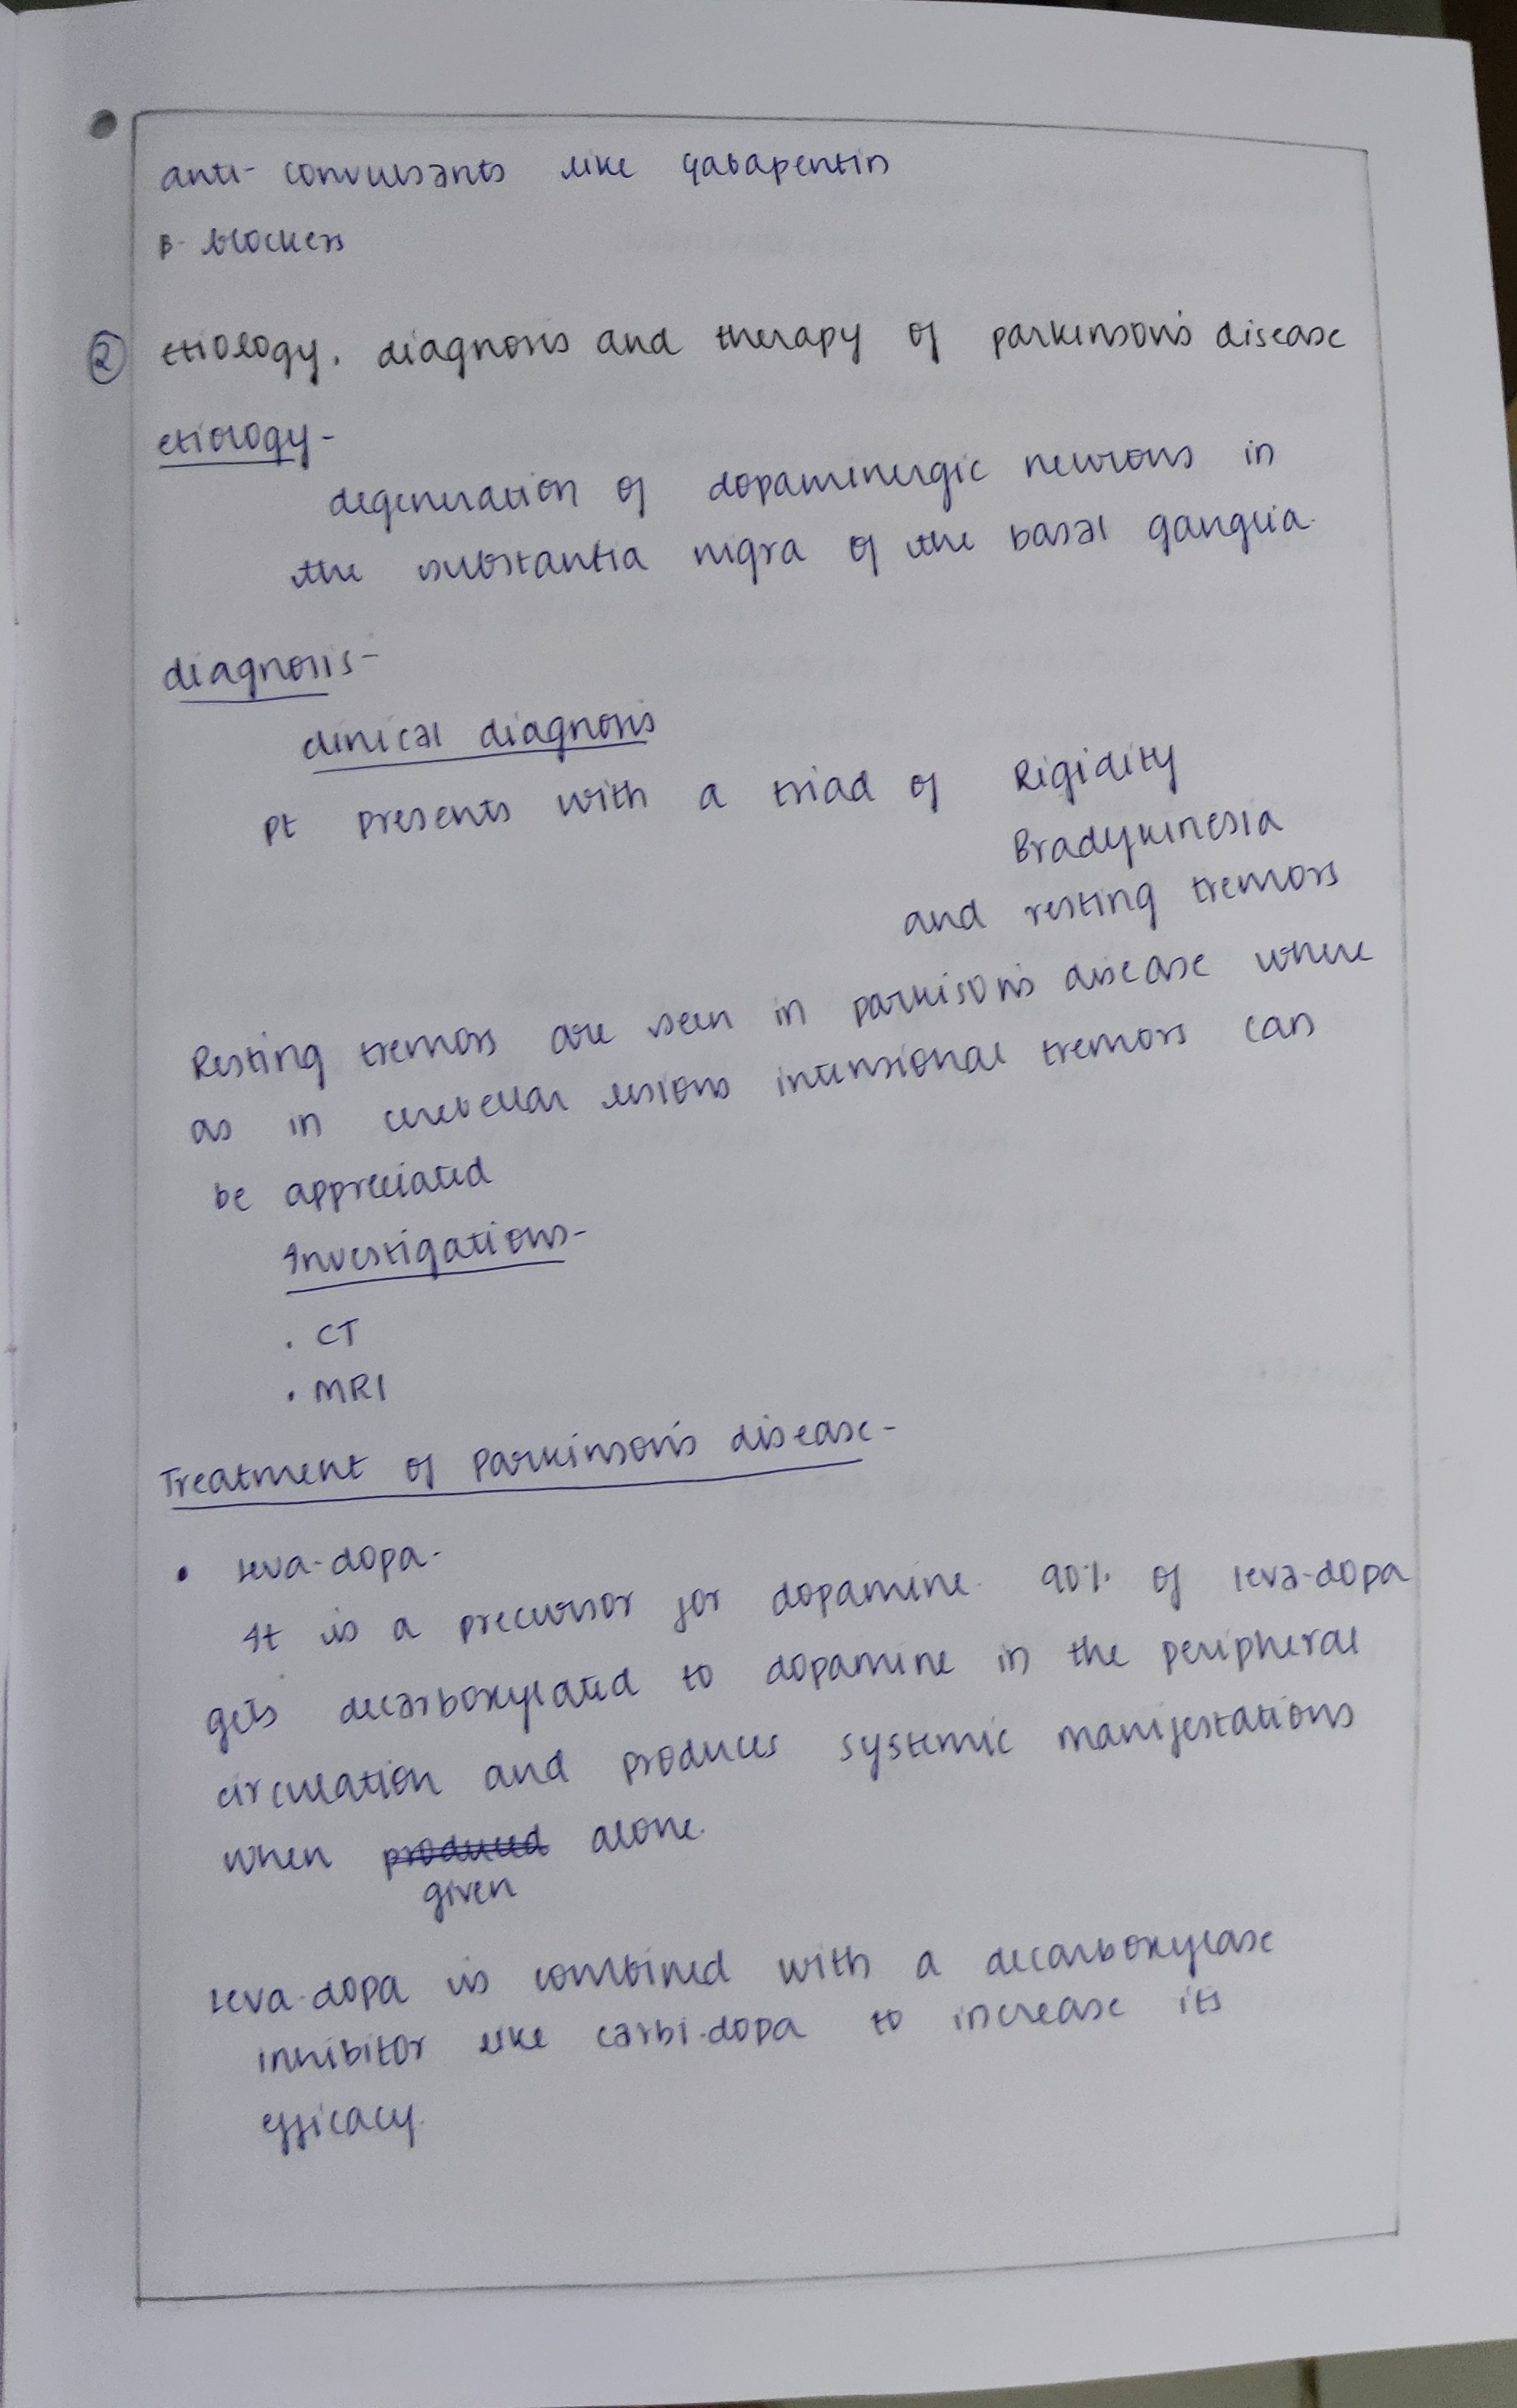 anti- convulsants like gabapentin
β- blockers
② etiology, diagnosis and therapy of parkinson's disease
etiology-
degeneration of dopaminergic neurons in
the substantia nigra of the basal ganglia.
diagnosis-
clinical diagnosis
pt presents with a triad of Rigidity
Bradykinesia
and resting tremors
Resting tremors are seen in parkison's disease where
as in cerebellar lesions intensional tremors can
be appreciated
Investigations-
. CT
. MRI
Treatment of Parkinson's disease-
• Leva-dopa-
It is a precursor for dopamine. 90% of leva-dopa
gets decarboxylated to dopamine in the peripheral
circulation and produces systemic manifestations
when produced alone.
given
Leva-dopa is combined with a decarboxylase
inhibitor like carbi-dopa to increase its
efficacy.